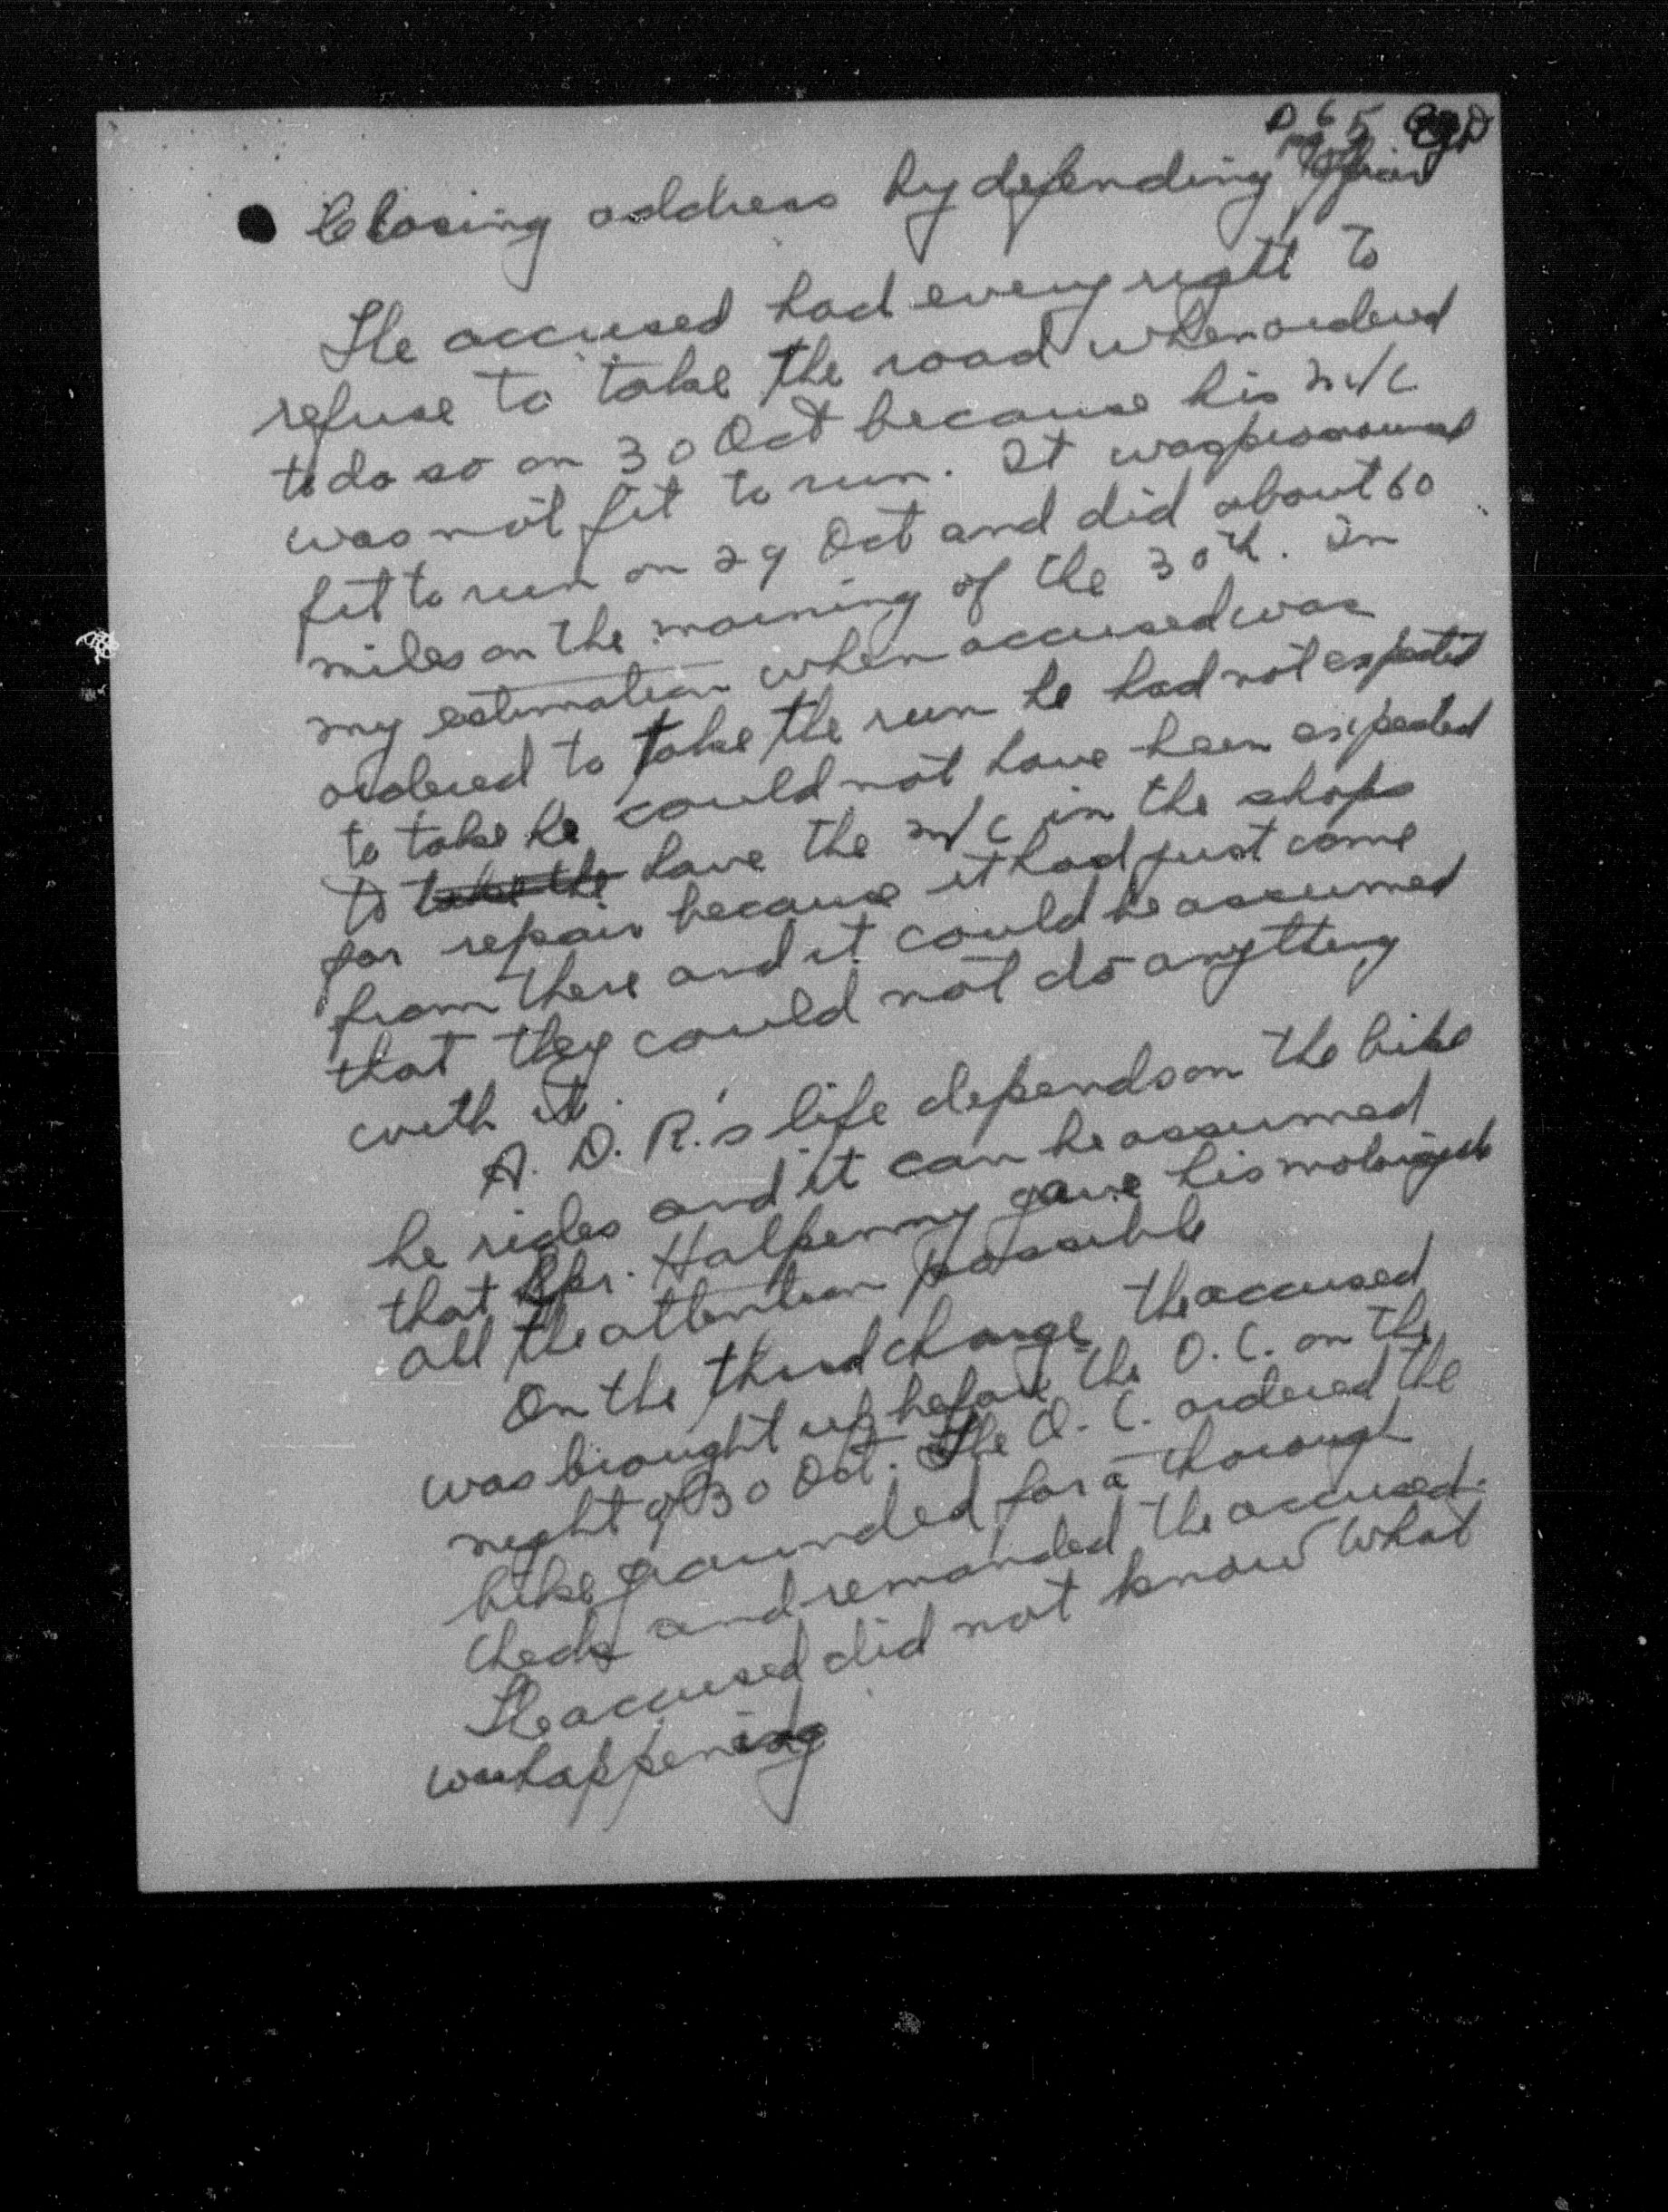 D 65
Closing address by defending officer
The accused had every right to
refuse to take the road when ordered
to do so on 30 Oct because his m/c
was not fit to run. It was pronounced
fit to run on 29 Oct and did about 60
miles on the morning of the 30th. In
my estimation when accused was
ordered to take the run he had not expected
to take he could not have been expected
to take the have the m/c in the shops
for repair because it had just come
from there and it could be assumed
that they could not do anything
with it.
A. D. R.'s life depends on the bike
he rides and it can be assumed
that Spr. Halpenny gave his motorcycle
all the attention possible
On the third charge the accused
was brought up before the O. C. on the
night of 30 Oct. The O. C. ordered the
bike grounded for a thorough
check and remanded the accused.
The accused did not know what
was happening